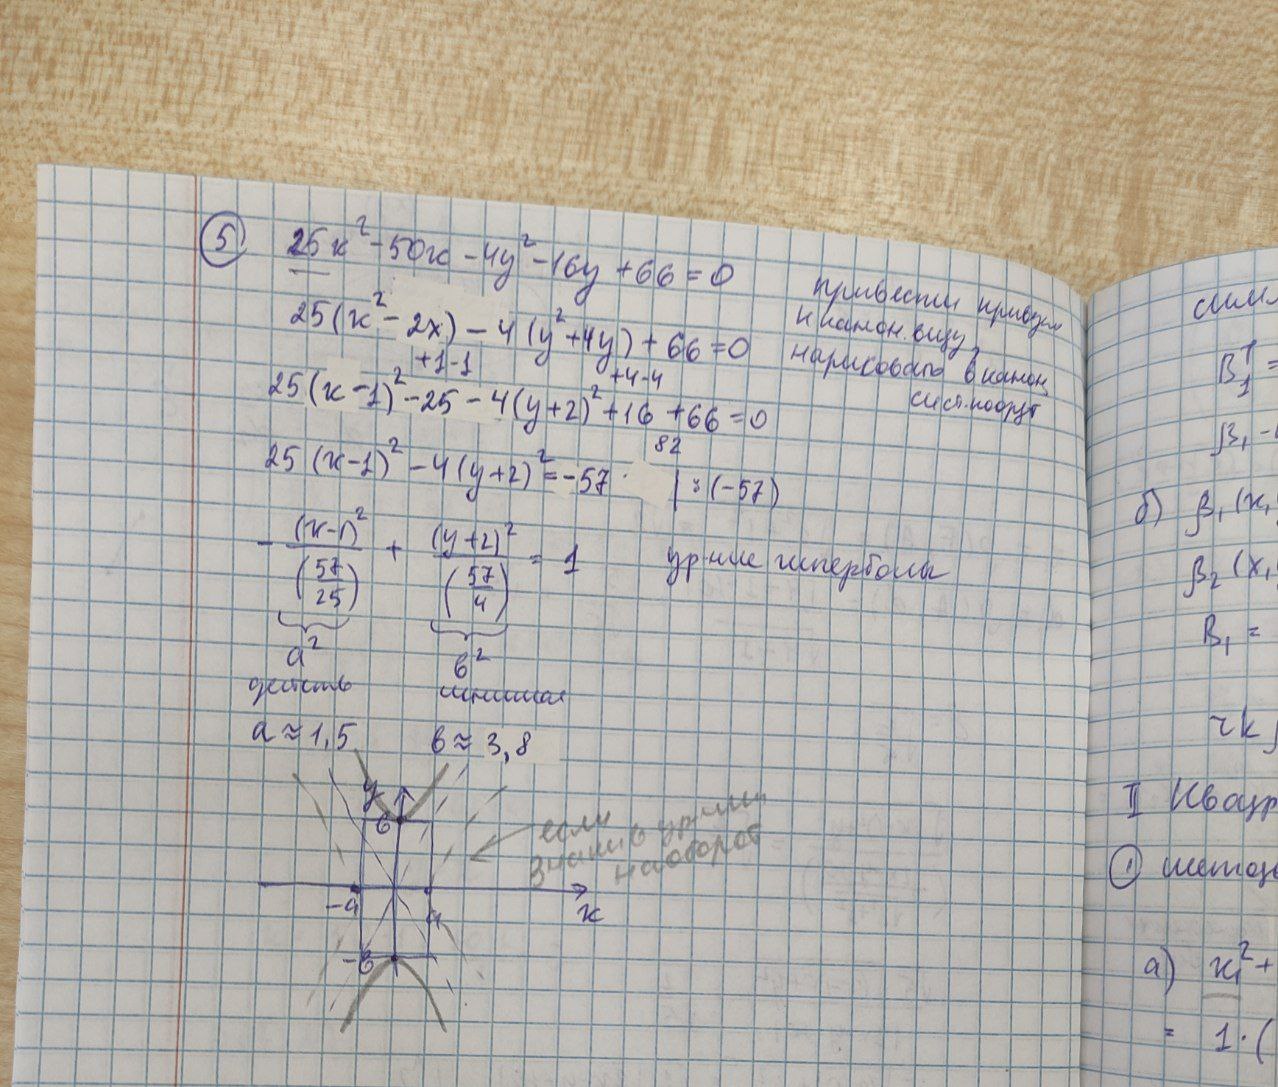 5 25x² - 50x - 4y² - 16y + 66 = 0
привести кривую
к канон. виду,
нарисовать в канон.
сист. коорд
25(x² - 2x) - 4(y² + 4y) + 66 = 0
+1-1 +4-4
25(x-1)² - 25 - 4(y+2)² + 16 + 66 = 0
82
25(x-1)² - 4(y+2)² = -57 | : (-57)
- (x-1)²/(57/25) + (y+2)²/(57/4) = 1 ур-ние гиперболы
a² b²
действ мнимая
a ≈ 1,5 b ≈ 3,8
y
b
если
знаки в ур-нии
наоборот
-a a x
-b
B₁ᵀ =
β₁ -
б) β₁(x,
β₂(x,
B₁ =
rk
II Квадр
① метод
а) x₁² +
= 1·(